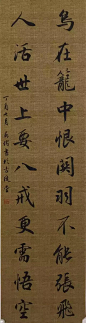 鳥在籠中恨關羽不能張飛
人活世上要八戒更需悟空
丁酉